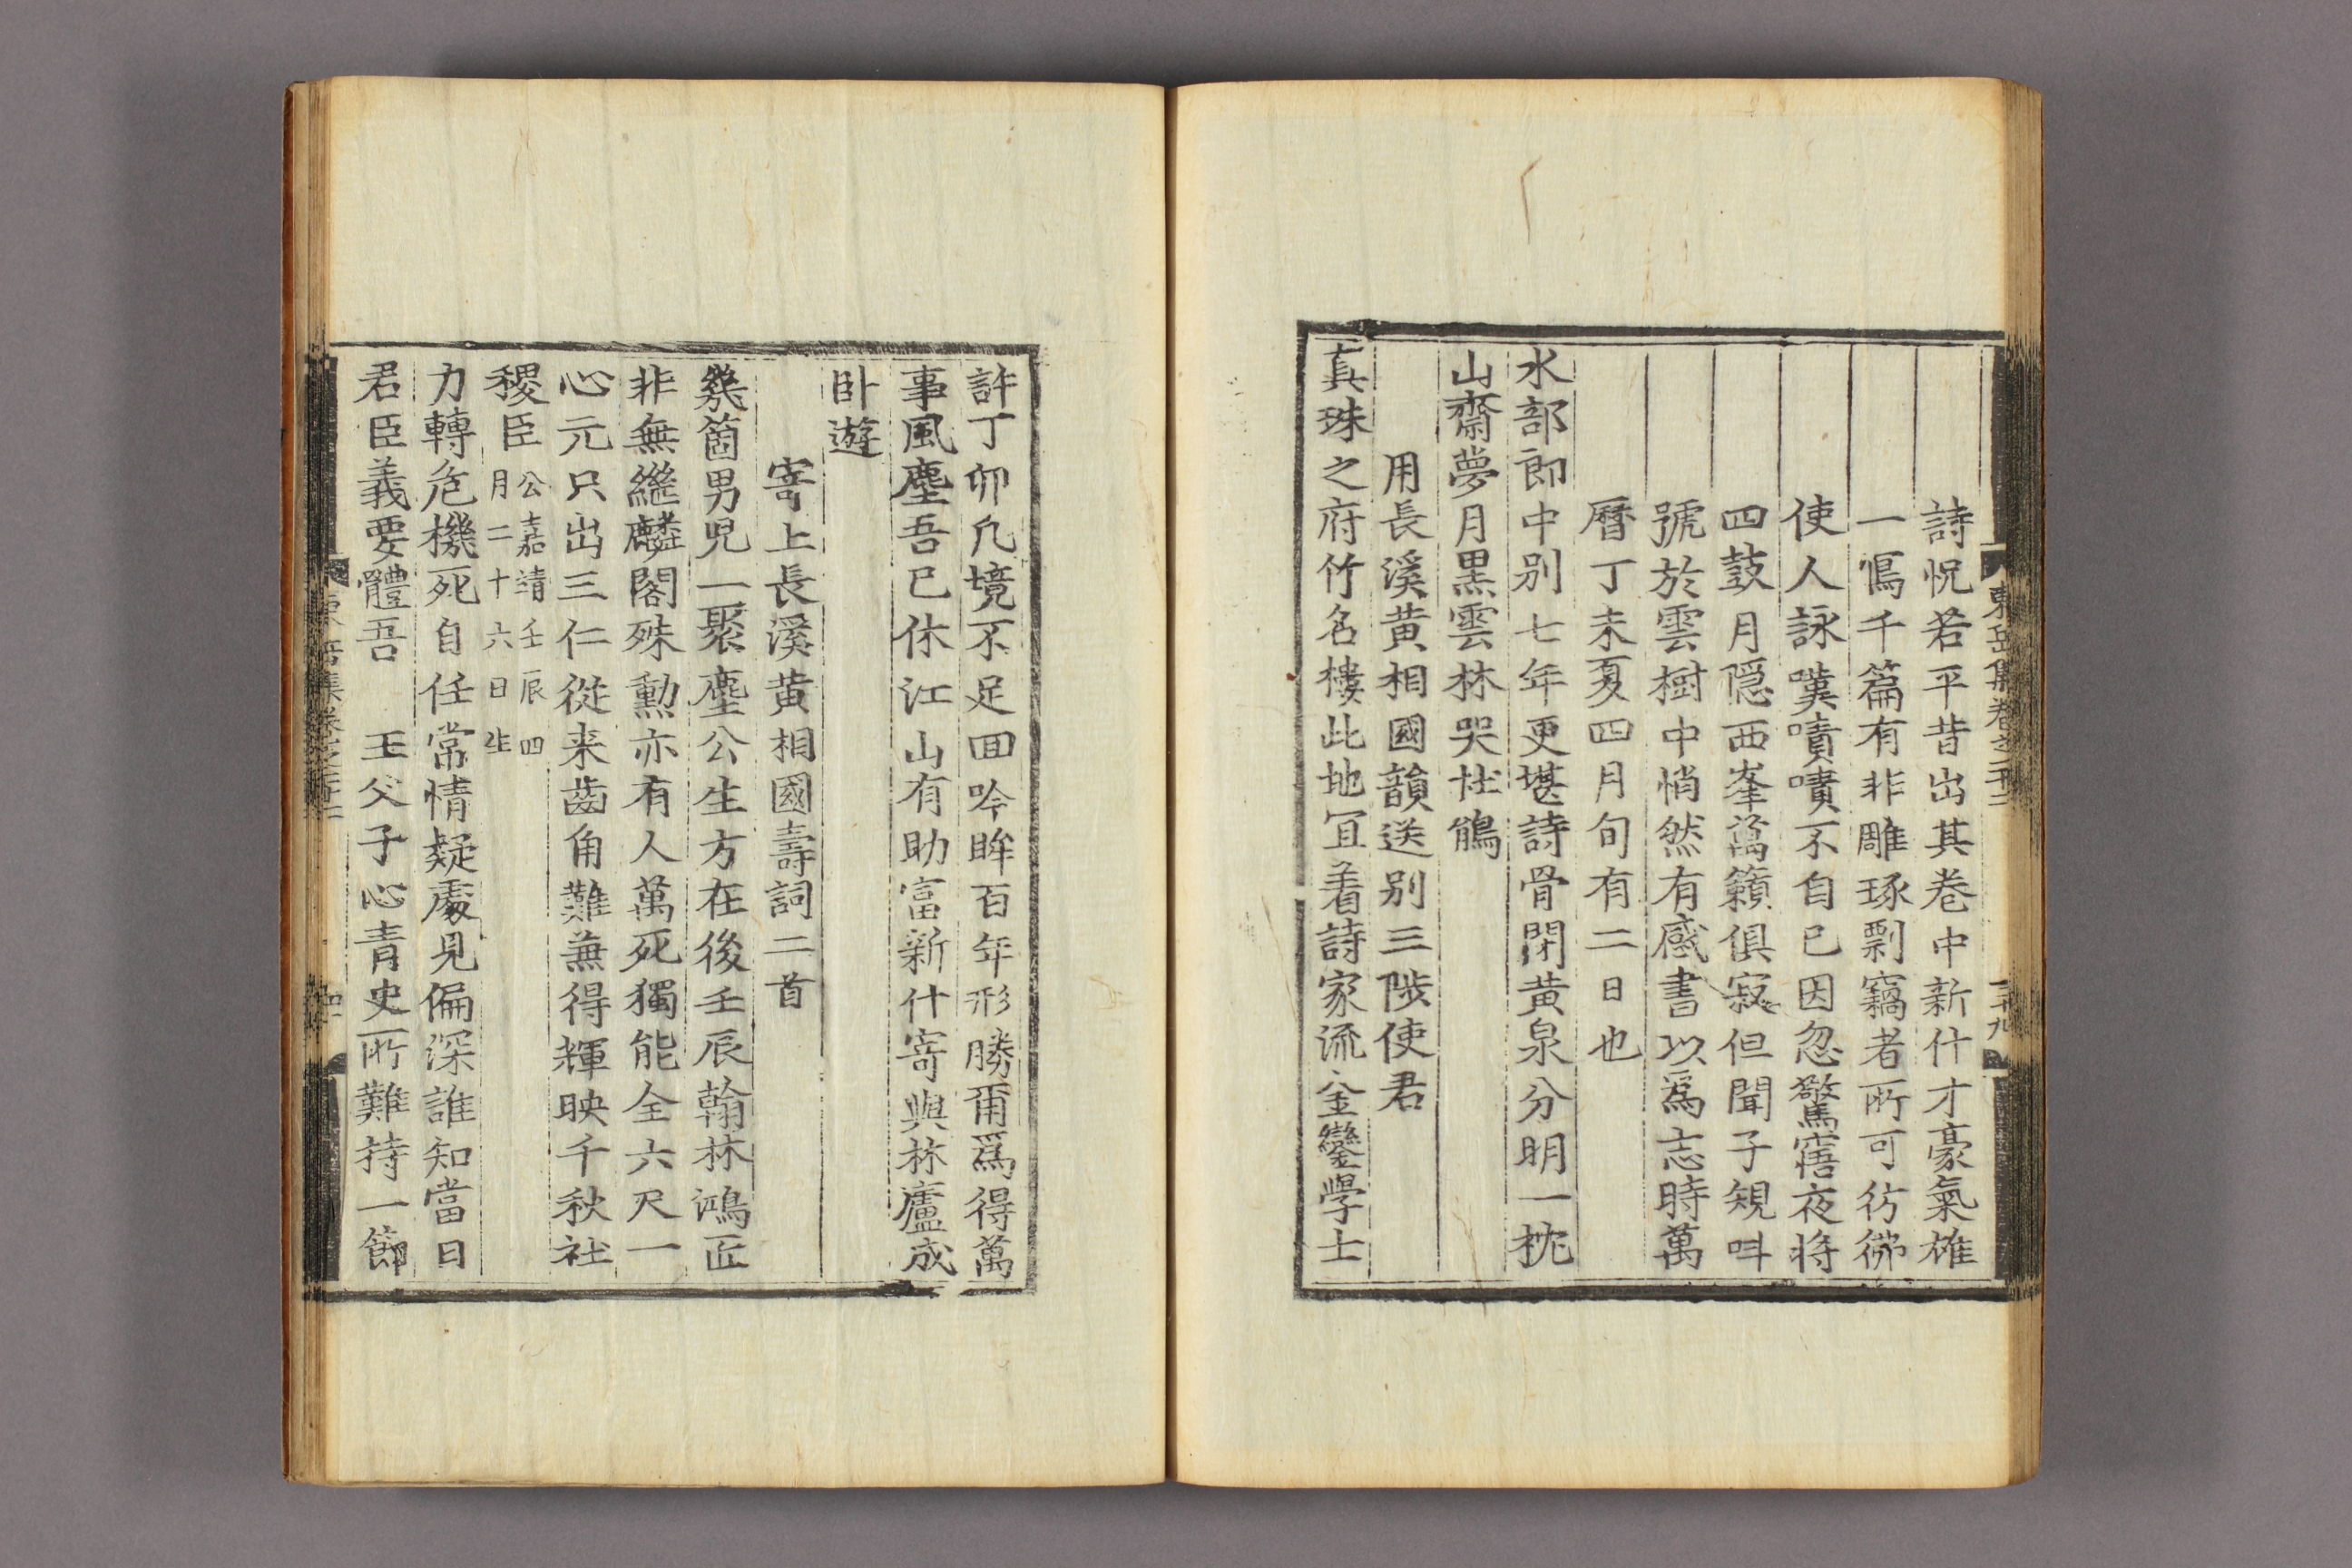 東岳集卷之二十二
三十九
詩怳若平昔出其卷中新什才豪氣雄
一鳴千篇有非雕琢剽竊者所可彷彿
使人詠嘆嘖嘖不自已因忽驚寤夜將
四鼓月隱西峯萬籟俱寂但聞子規叫
號於雲樹中悄然有感書以爲志時萬
曆丁未夏四月旬有二日也
水部郎中别七年更堪詩骨閉黄泉分明一枕
山齋夢月黒雲林哭杜鵑
用長溪黄相國韻送别三陟使君
真珠之府竹名樓此地冝着詩家流金鑾學士
許丁卯凡境不足回吟眸百年形勝爾爲得萬
事風塵吾已休江山有助富新什寄與林廬成
卧遊
寄上長溪黄相國壽詞二首
幾箇男兒一聚塵公生方在後壬辰翰林鴻匠
非無繼麟閣殊勳亦有人萬死獨能全六尺一
心元只出三仁從来齒角難兼得輝映千秋社
稷臣公嘉靖壬辰四
月二十六日生
力轉危機死自任常情疑處見偏深誰知當日
君臣義要體吾　王父子心青史所難持一節